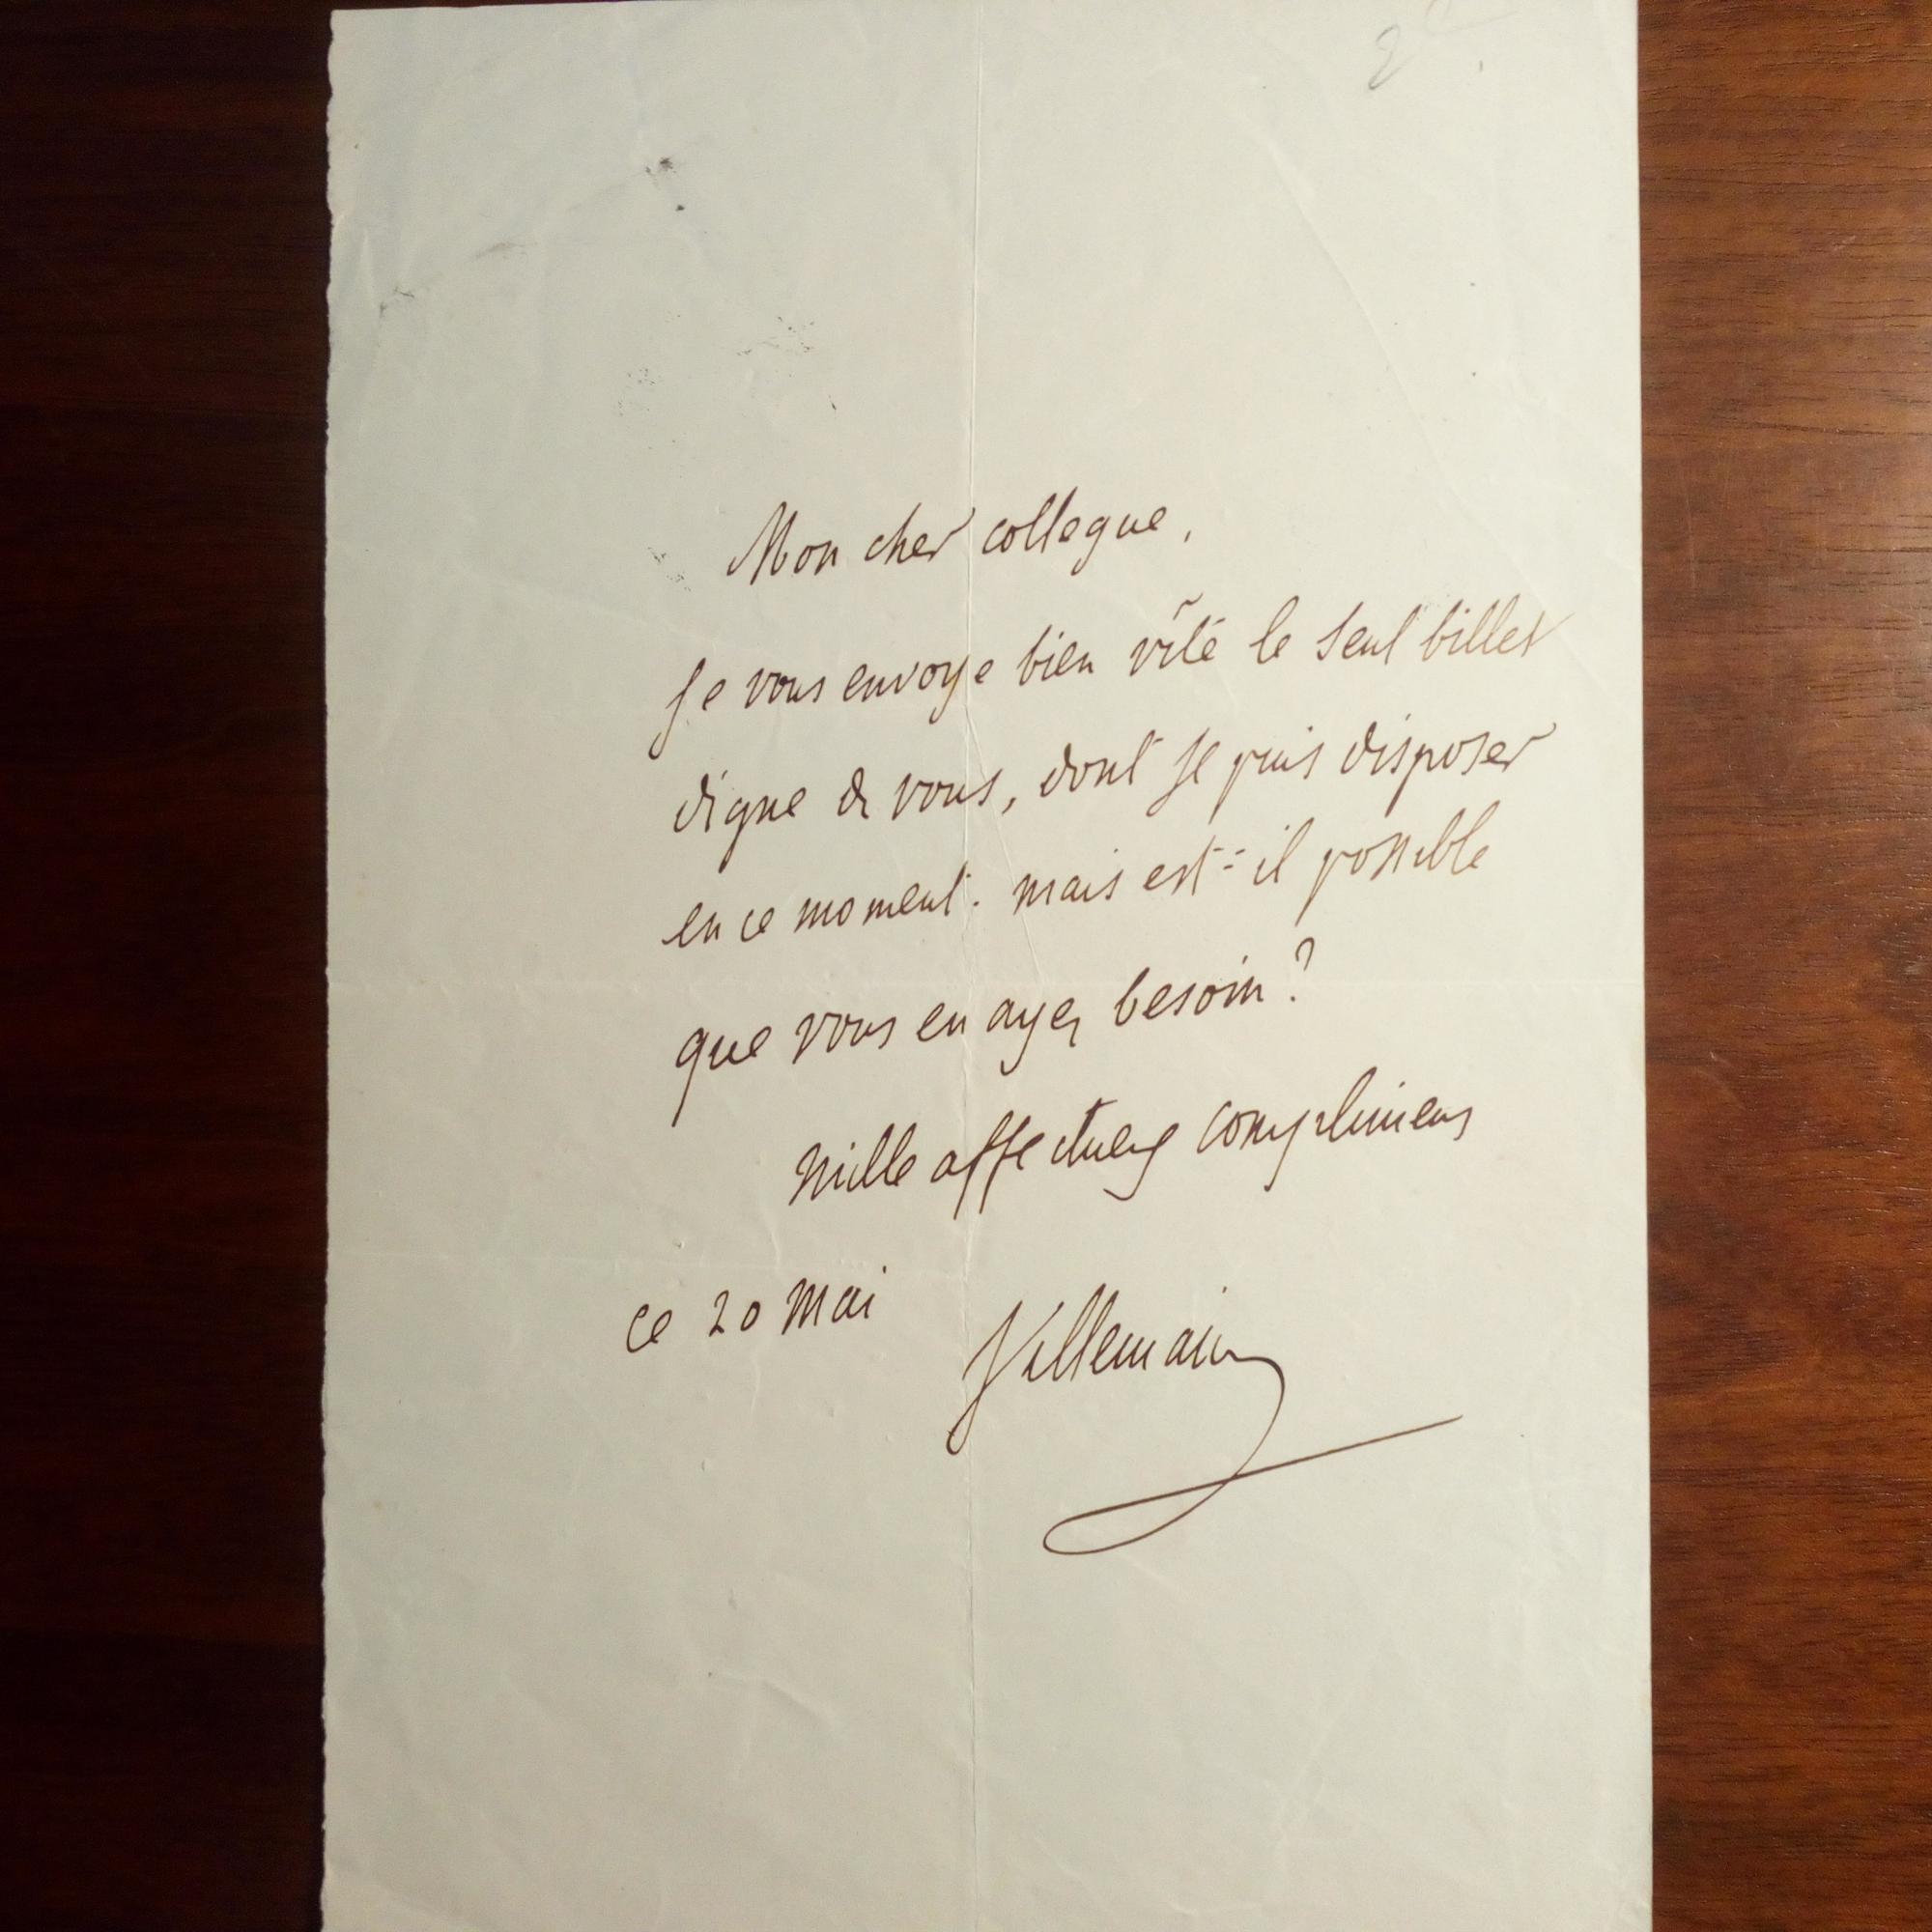 Mon cher collegue,
je vous envoye bien vite le seul billet
digne de vous, dont je puis disposer
en ce moment. mais est-il possible
que vous en ayez besoin?
mille affectueux complimens
ce 20 mai
Villemain